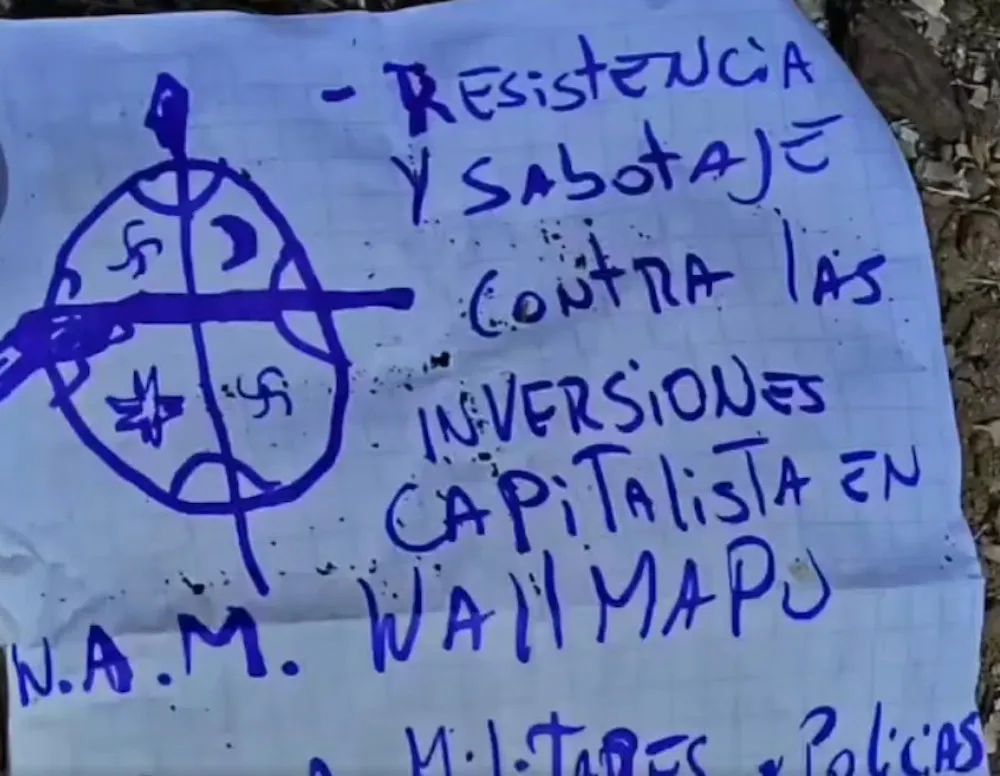 - RESisTENCiA
Y SAbotAJE
CONtRA lAS
INVERSiONES
CAPiTAlisTA EN
W.A.M. WAllMAPU
MiliTARES y PoliCiAS